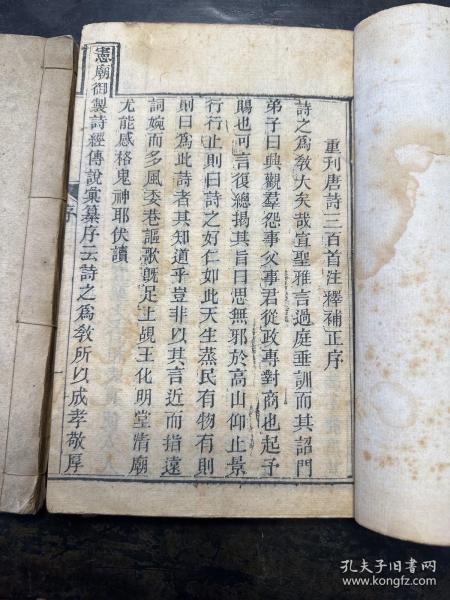 重刊唐詩三百首注釋補正序
詩之爲敎大矣哉宣聖雅言過庭垂訓而其詔門
弟子曰興觀羣怨事父事君從政專對商也起予
賜也可言復總揭其旨曰思無邪於高山仰止景
行行止則曰詩之好仁如此天生蒸民有物有則
則曰爲此詩者其知道乎豈非以其言近而指遠
詞婉而多風委巷謳歌旣足上覘王化明堂淸廟
尤能感格鬼神耶伏讀
憲廟御製詩經傳說彙纂序云詩之爲敎所以成孝敬厚
序
孔夫子旧书网
www.kongfz.com